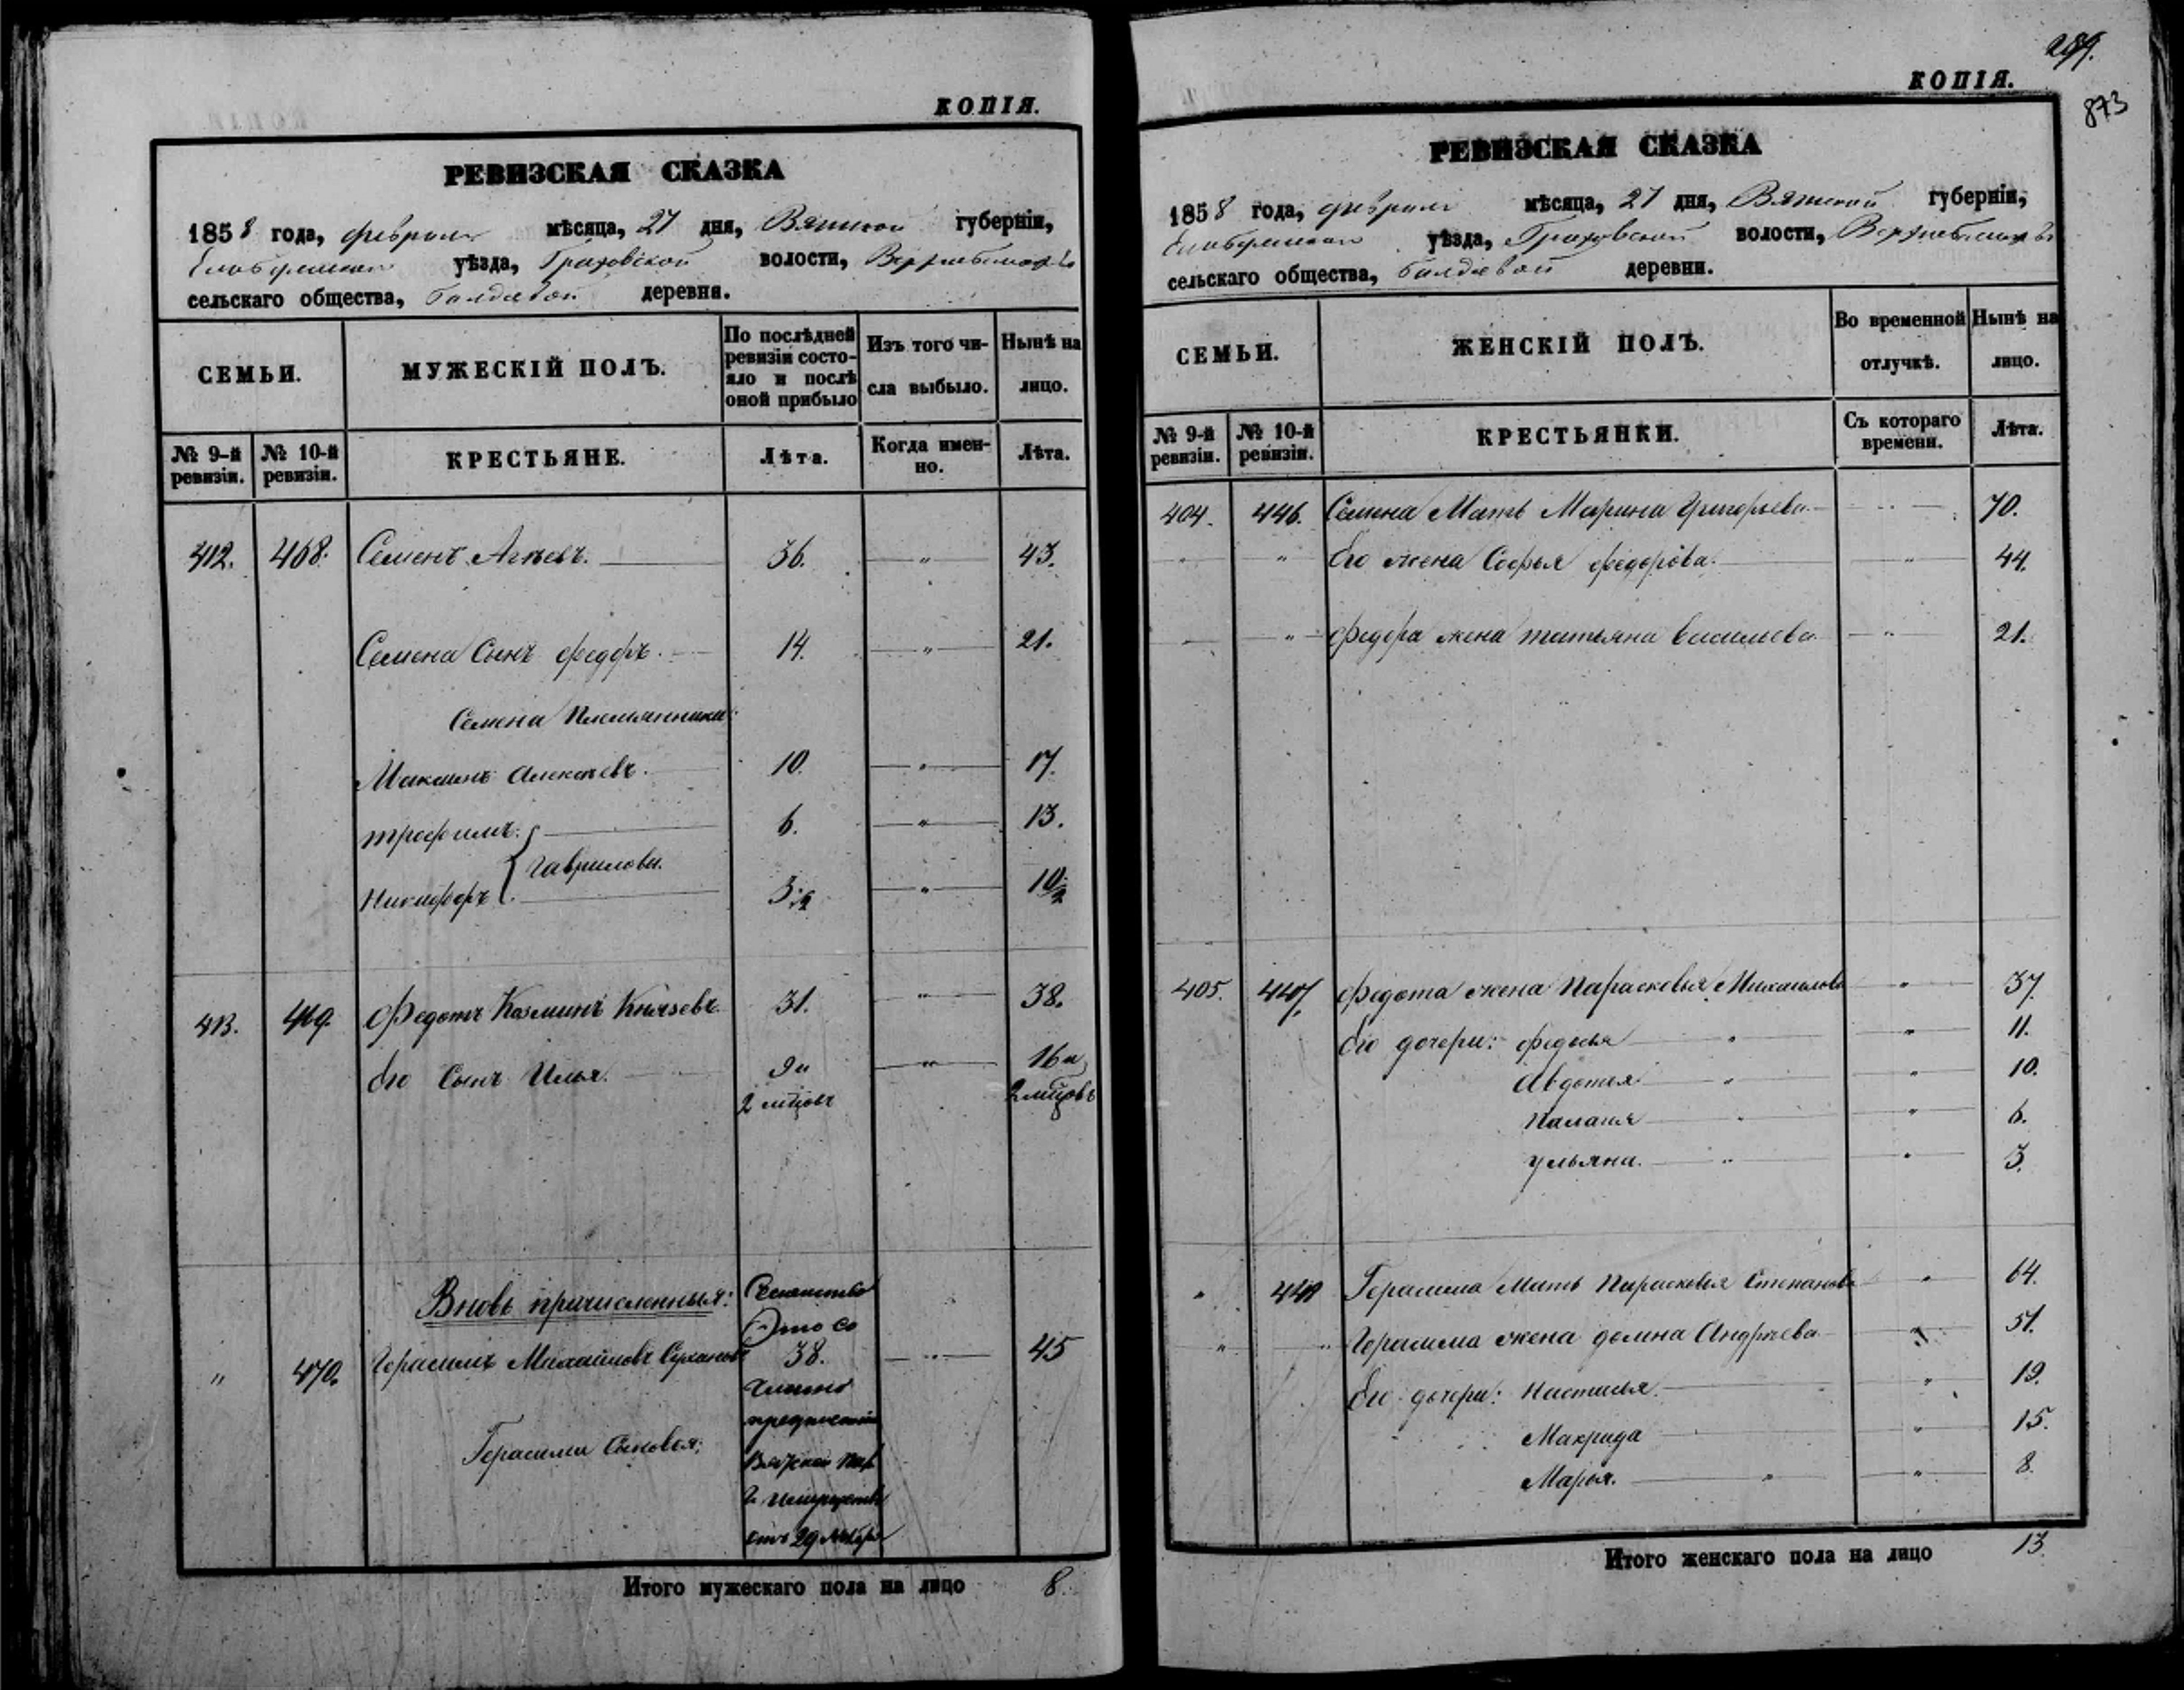 КОПІЯ.
РЕВИЗСКАЯ СКАЗКА
1858 года, февраля мѣсяца, 27 дня, Вятской губерніи,
Елабужскаго уѣзда, Граховской волости,
сельскаго общества, Балдѣевой деревня.
СЕМЬИ.
МУЖЕСКІЙ ПОЛЪ.
По послѣдней ревизіи состо-
яло и послѣ
оной прибыло
Изъ того чи-
сла выбыло.
Нынѣ на
лицо.
№ 9-й ревизіи.
№ 10-й ревизіи.
КРЕСТЬЯНЕ.
Лѣта.
Когда имен-
но.
Лѣта.
412. 468. Семенъ 36. " 43.
Семена Сынъ Федоръ. 14. " 21.
Семена Племянники:
Максимъ Алексѣевъ. 10. " 17.
Трофимъ. 6. " 13.
Гавриловы.
Никифоръ 3 1/2 " 10 1/2
413. 469. Федотъ Козминъ Князевъ. 31. " 38.
Его Сынъ Илья. 9 и " 16 и
2 мѣсцовъ 2 мѣсцовъ
Вновь причисленныя:
" 470. Герасимъ Михайловъ Сухановъ 38. " 45
Герасима Сыновья:
отъ 29
Итого мужескаго пола на лицо 8.
299.
КОПІЯ.
873
РЕВИЗСКАЯ СКАЗКА
1858 года, февраля мѣсяца, 27 дня, Вятской губерніи,
Елабужскаго уѣзда, Граховской волости,
сельскаго общества, Балдѣевой деревни.
СЕМЬИ.
ЖЕНСКІЙ ПОЛЪ.
Во временной
отлучкѣ.
Нынѣ на
лицо.
№ 9-й ревизіи.
№ 10-й ревизіи.
КРЕСТЬЯНКИ.
Съ котораго
времени.
Лѣта.
404. 446. Семена Мать Марина Григорьева 70.
" " Его жена Софья Федорова. " 44.
" Федора жена Татьяна Васильева " 21.
405. 447. Федота жена Парасковья Михаилова " 37.
Его дочери: Федосья " " 11.
Авдотья " " 10.
Палагея " " 6.
Ульяна. " " 3.
" 448 Герасима Мать Парасковья Степанова " 64.
" " Герасима жена Домна Андрѣева " 51.
Его дочери: Настасья. " 19.
Макрида " 15.
Марья. " " 8.
Итого женскаго пола на лицо 13.